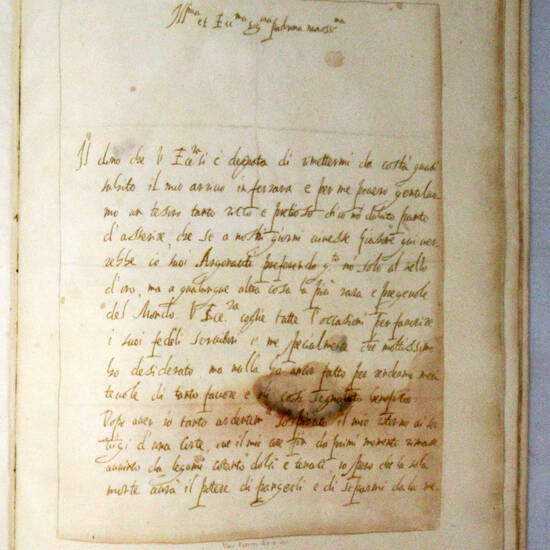 Ill.ma et Ecc.ma Sig.ra padrona mass.ma
Il dono che V. Ecc.za si è degnata di rimettermi da costà quasi
subito il mio arrivo in ferrara e per me povero gentiluo
mo un tesoro tanto ricco e pretioso ch'io nõ dubito punto
d'asserire che se a nostri giorni vivesse Giasone qui ver
rebbe co suoi Argonauti preferendo q.to nõ solo al vello
d'oro, ma a qualunque altra cosa la più rara e pregevole
del Mondo. V. Ecc.za coglie tutte l'occasioni per favorire
i suoi fedeli servitori e me specialmente che moltissimo
ho desiderato ma nulla ho ancor fatto per rendermi meri
tevole di tanto favore e di così segnalato
Dopo aver io tanto ardentem. sospirato il mio ritorno ai
d'una Corte, ove il mio core fin da primi momenti rimase
avvinto da legami cotanto dolci e tenaci, io spero che la sola
morte avrà il potere di frangerli e di separarmi da la